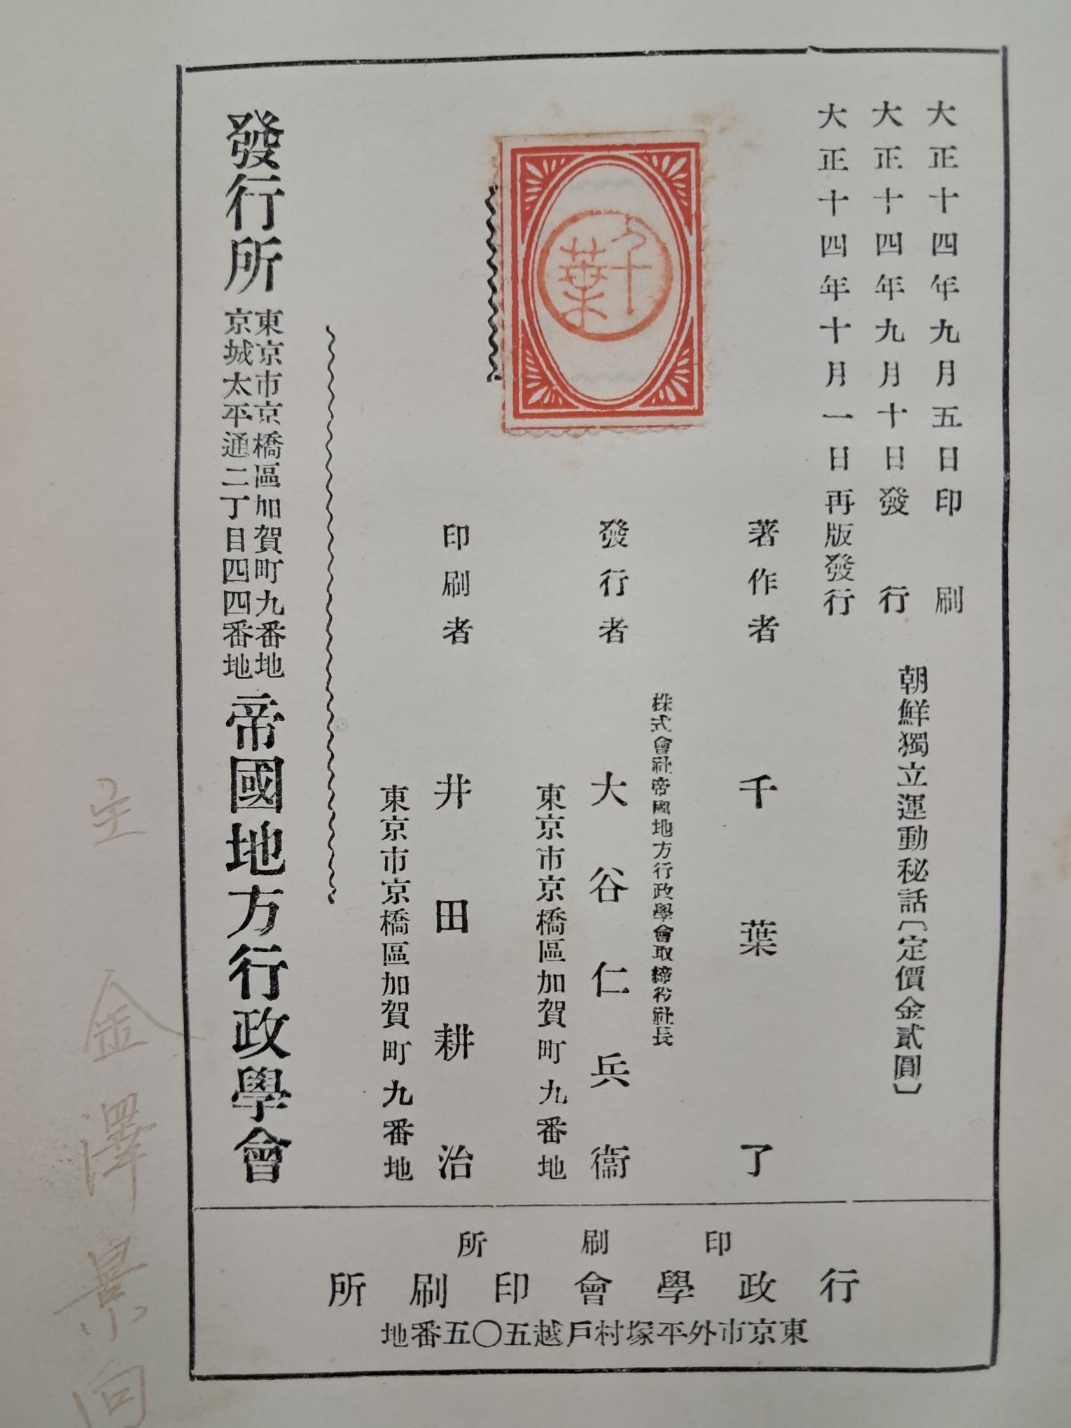 大正十四年九月五日印刷
大正十四年九月十日發行
大正十四年十月一日再版發行
朝鮮獨立運動秘話〔定價金貳圓〕
著作者 千葉了
株式會社帝國地方行政學會取締役社長
發行者 大谷仁兵衞
東京市京橋區加賀町九番地
印刷者 井田耕治
東京市京橋區加賀町九番地
千葉
發行所
東京市京橋區加賀町九番地
京城太平通二丁目四四番地
帝國地方行政學會
印刷所
行政學會印刷所
東京市外平塚村戶越五〇五番地
主 金澤景向